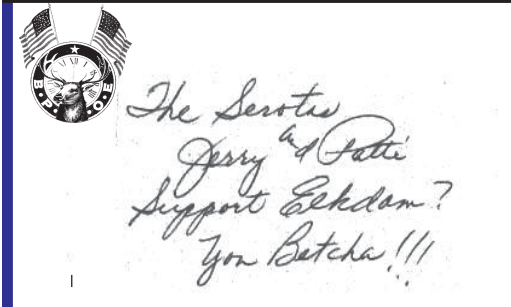 B.P.O.E.
The Serotas
Jerry and Patti
Support Elkdom?
You Betcha!!!